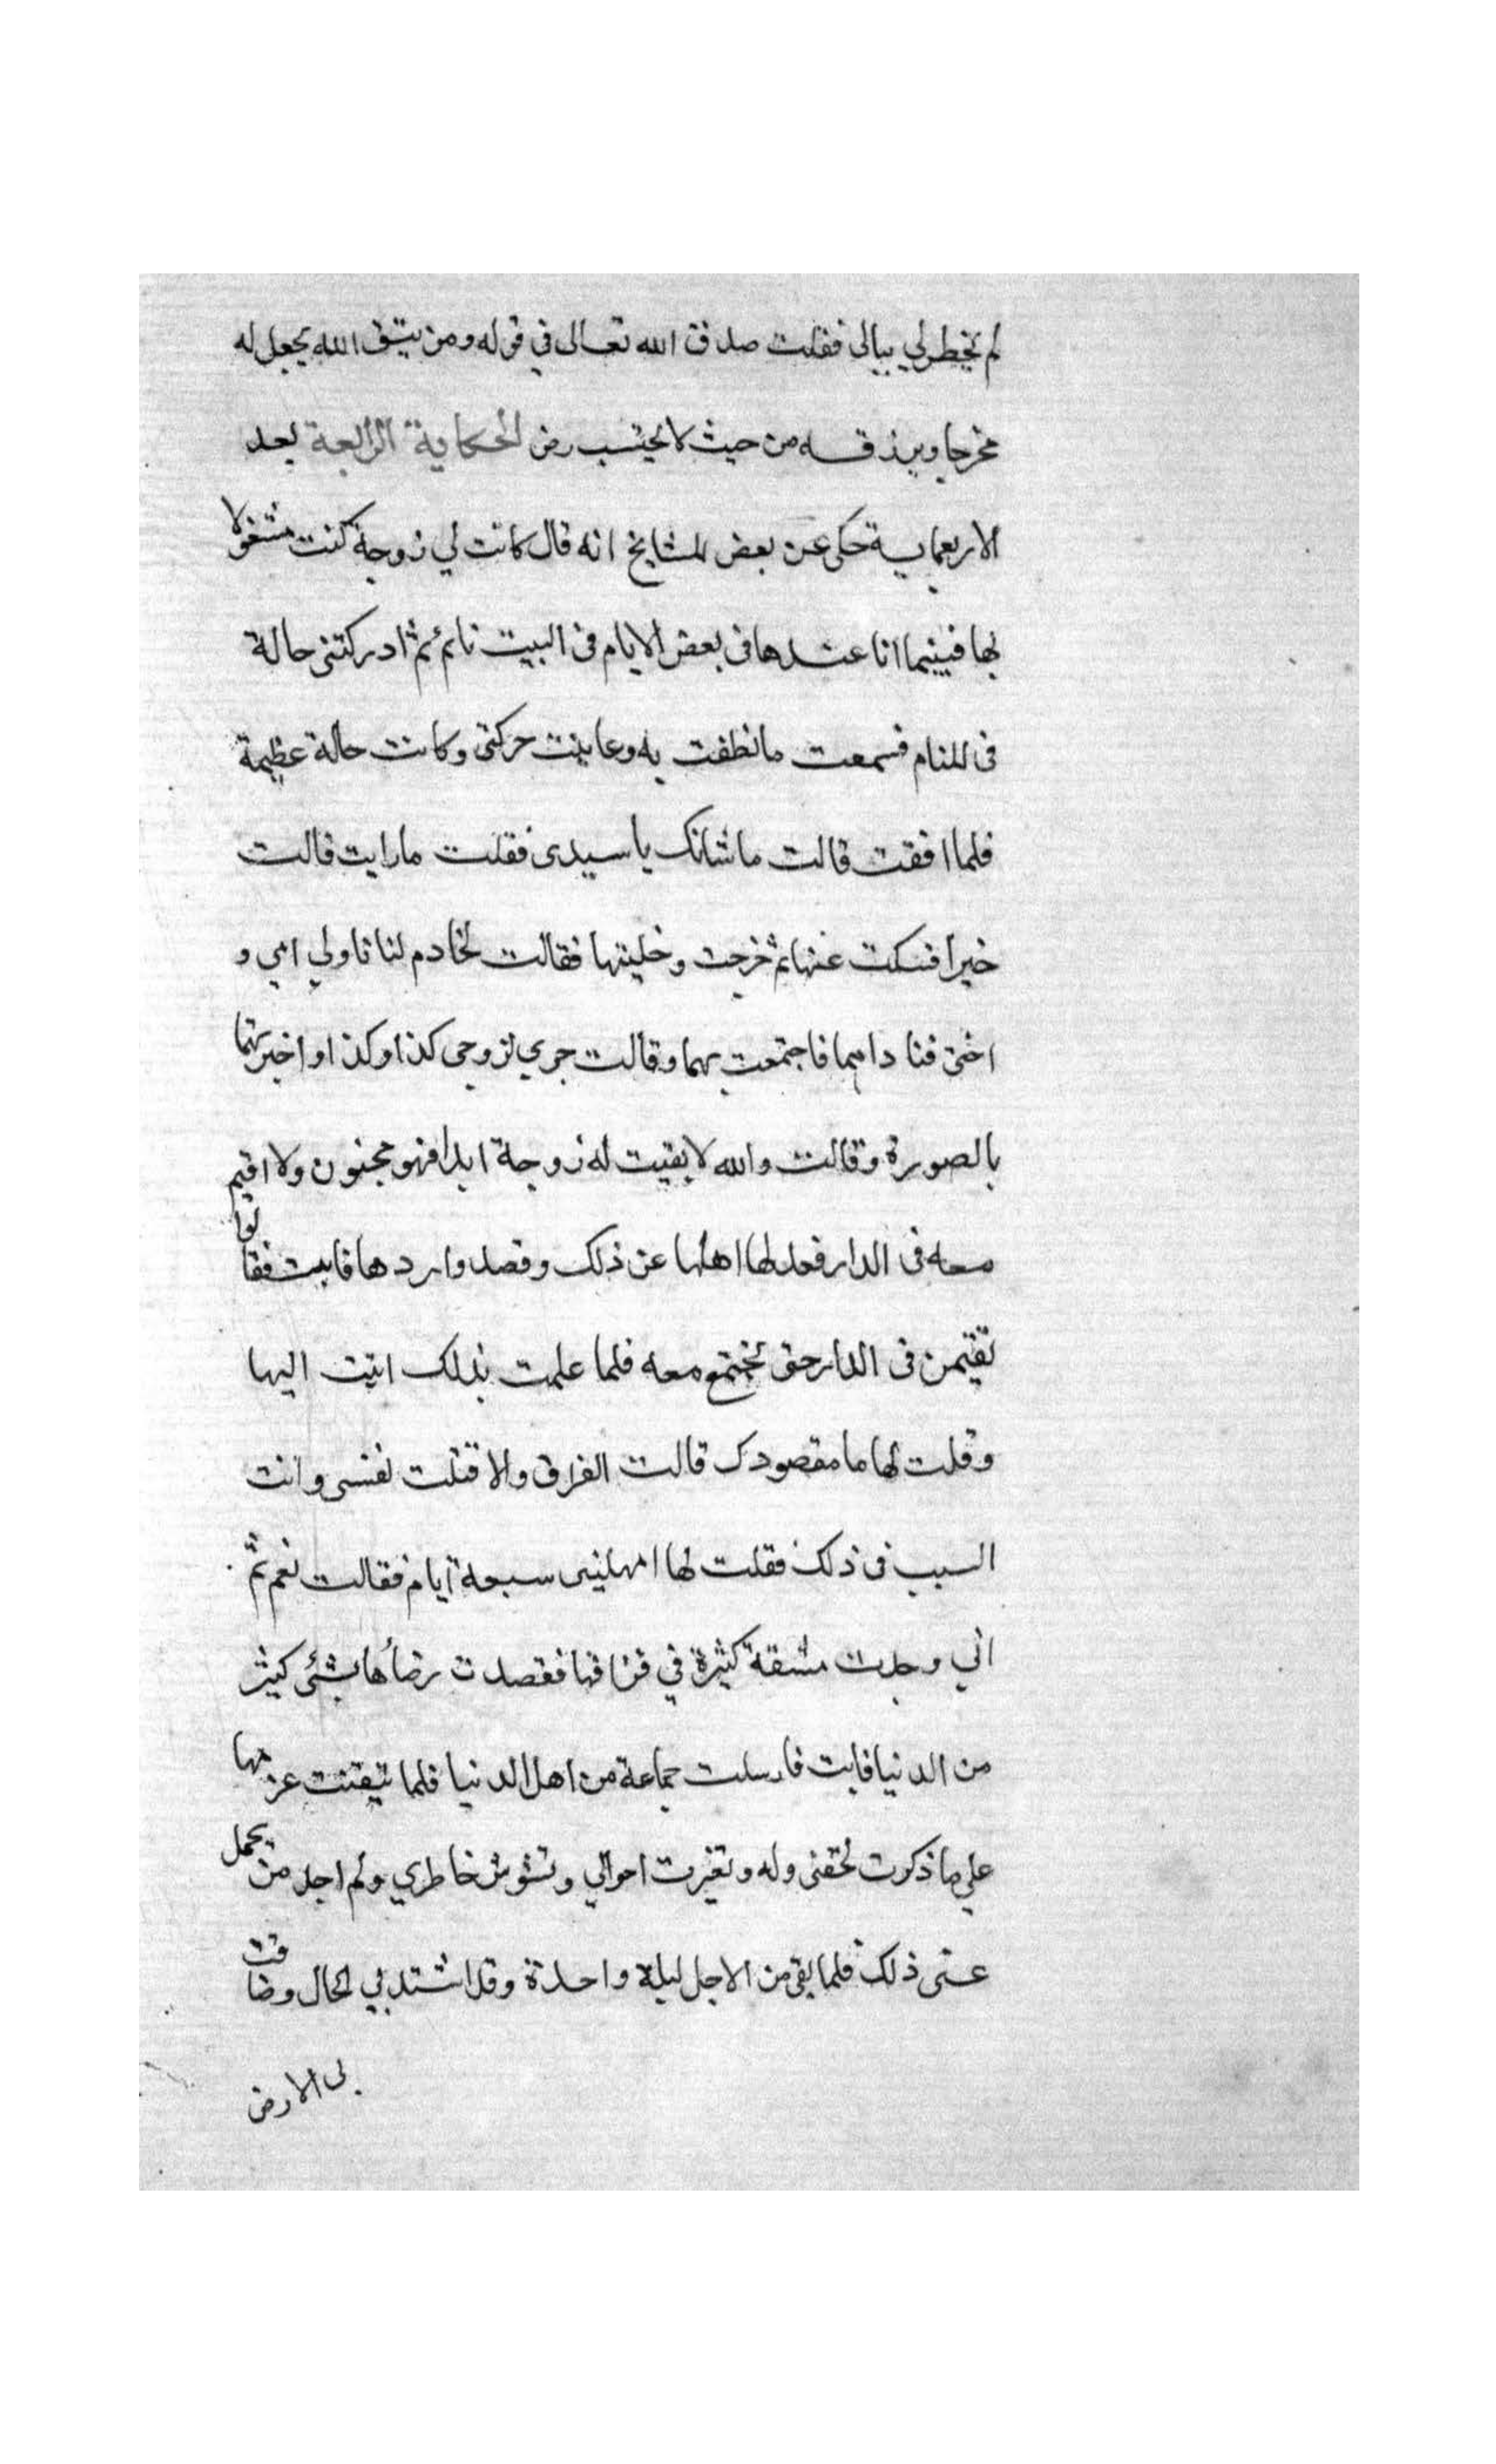 لم يخطر لي ببالي فقلت صدق الله تعالى في قوله ومن يتق الله يجعل له
مخرجا ويرزقه من حيث لا يحتسب رض الحكاية الرابعة بعد
الاربعماية حكى عن بعض المشايخ انه قال كانت لي زوجة كنت مشغولا
بها فبينما انا عندها في بعض الايام في البيت نائم ثم ادركتني حالة
في المنام فسمعت ما نطقت به وعاينت حركتي وكانت حالة عظيمة
فلما افقت قالت ما شانك يا سيدى فقلت ما رايت قالت
خيرا فسكت عنها ثم خرجت وخليتها فقالت لخادم لنا ناولي امي و
اختى فنا داهما فاجتمعت بهما وقالت جري لزوجي كذا وكذا واخبرتهما
بالصورة وقالت والله لا بقيت له زوجة ابدا فهو مجنون ولا اقيم
معه فى الدار فعدلها اهلها عن ذلك وقصدوا ردها فابت فقالوا
تقيمن فى الدار حتى نجتمع معه فلما علمت بذلك اتيت اليها
وقلت لها ما مقصودك قالت الفراق والا قتلت نفسى وانت
السبب فى ذلك فقلت لها امهلينى سبعة ايام فقالت نعم ثم
اني وجدت مشقة كثيرة في فراقها فقصدت رضأها بشئ كثير
من الدنيا فابت فارسلت جماعة من اهل الدنيا فلما تيقنت عزمها
علي ما ذكرت لحقنى وله وتغيرت احوالي وتشوش خاطري ولم اجد من يحمل
عنى ذلك فلما بقى من الاجل ليلة واحدة وقد اشتد بي الحال وضاقت
بى الارض